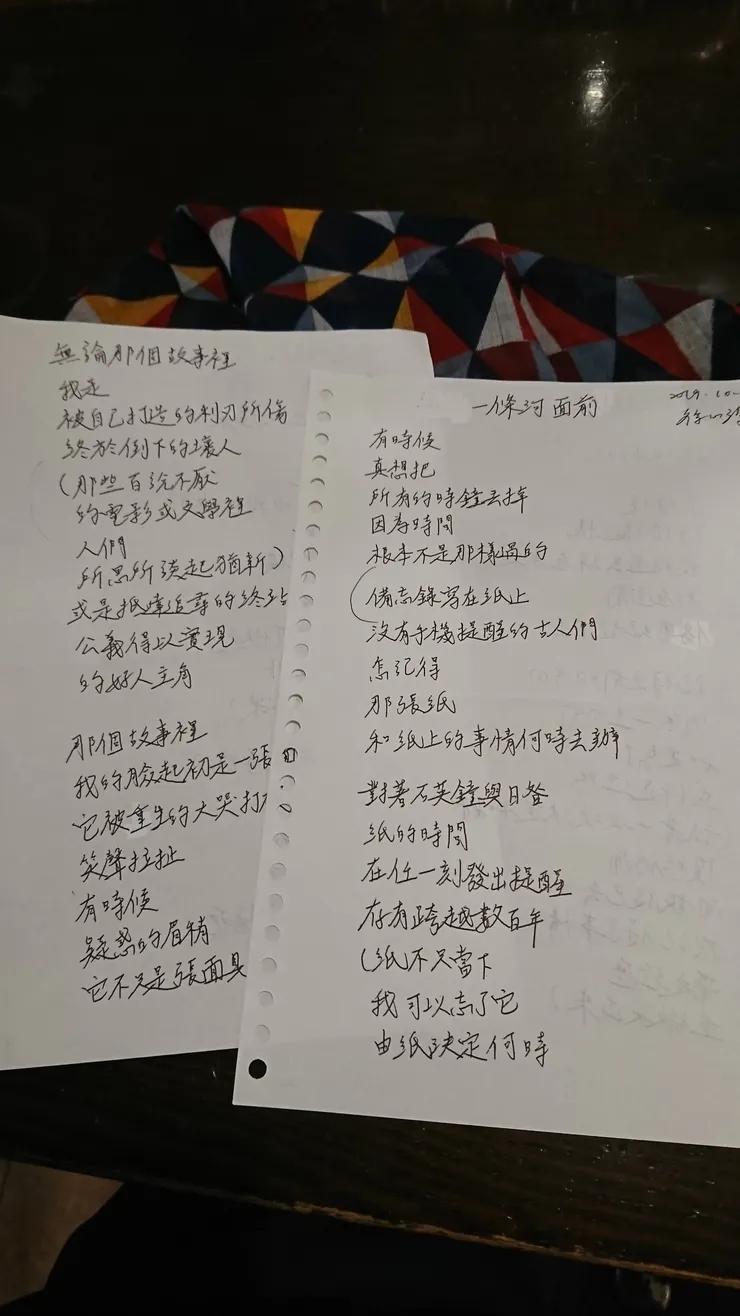 無論那個故事裡
我是
被自己打造的利刃所傷
終於倒下的壞人
(那些百說不厭
的電影或文學裡
人們
所思所談起猶新)
或是抵達追尋的終站
公義得以實現
的好人主角
那個故事裡
我的臉起初是一張
它被重生的大哭打
笑聲拉扯
有時候
疑惑的眉稍
它不只是張面具
2019.10.
一條河面前
有時候
真想把
所有的時鐘丟掉
因為時間
根本不是那樣過的
(備忘錄寫在紙上
沒有手機提醒的古人們
怎記得
那張紙
和紙上的事情何時去辦
對著石英鐘與日晷
紙的時間
在任一刻發出提醒
存有跨越數百年
(紙)不只當下
我可以忘了它
由紙決定何時